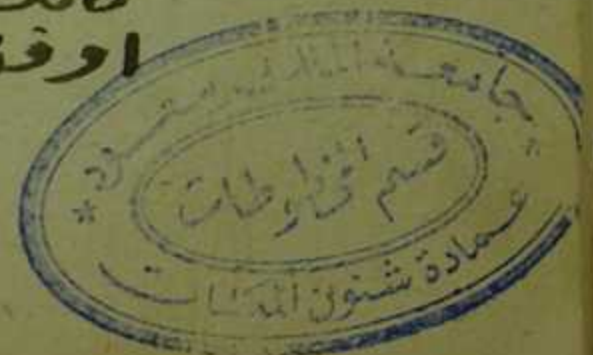 اوفق
جامعة الملك سعود
قسم المخطوطات
عمادة شئون المكتبات